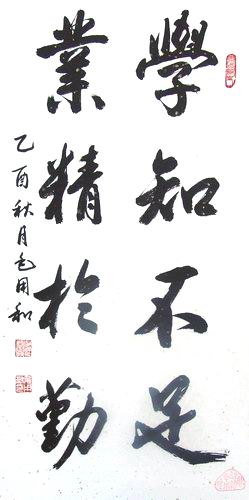 學知不足
業精於勤
乙酉秋月毛用和